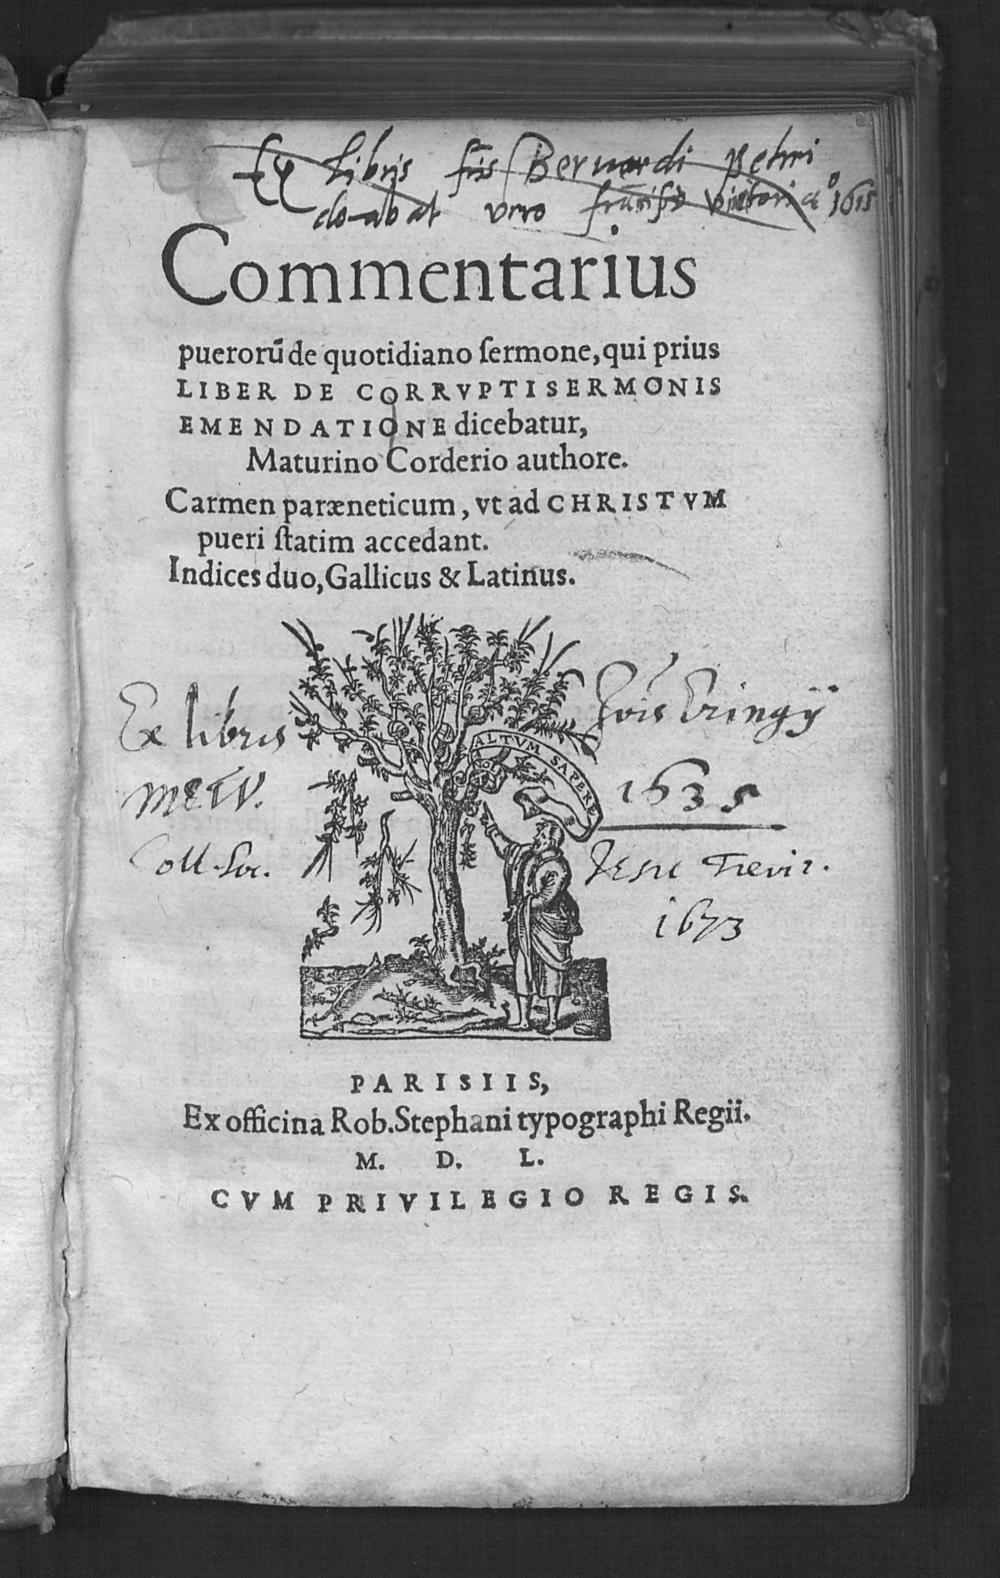 Ex Libris frīs Bernardi petri
do-abat vero
1615
Commentarius
puerorū de quotidiano ſermone, qui prius
LIBER DE CORRVPTI SERMONIS
EMENDATIONE dicebatur,
Maturino Corderio authore.
Carmen paræneticum, vt ad CHRISTVM
pueri ſtatim accedant.
Indices duo, Gallicus & Latinus.
ALTVM SAPERE
Ex libris
1635
Coll. Soc. Jesu Trevir.
1673
PARISIIS,
Ex officina Rob. Stephani typographi Regii.
M. D. L.
CVM PRIVILEGIO REGIS.